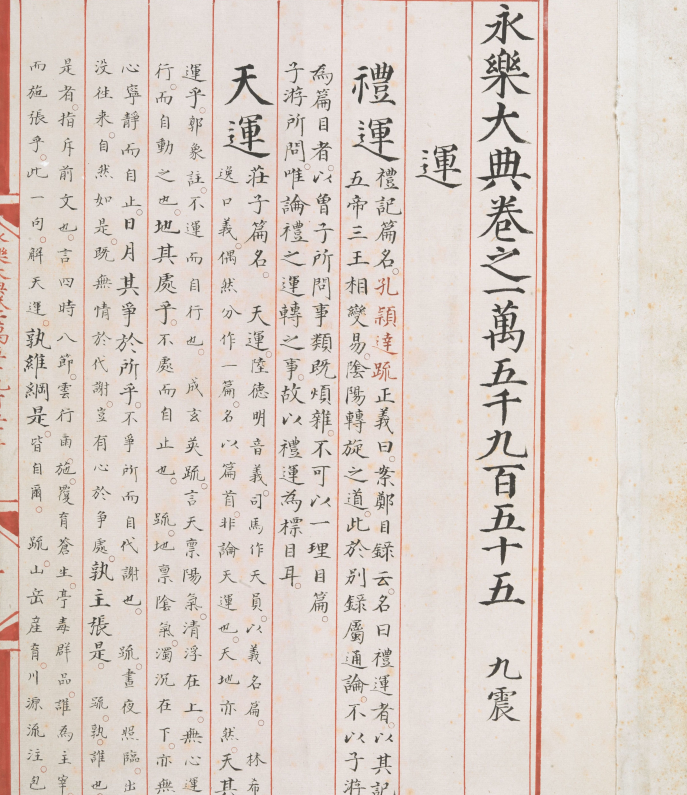 永樂大典卷之一萬五千九百五十五 九震
運
禮運 禮記篇名孔頴達疏正義曰案鄭目錄云名曰禮運者以其記
五帝三王相變易陰陽轉旋之道此於別錄屬通論不以子游
為篇目者以曾子所問事類既煩雜不可以一理目篇
子游所問唯論禮之運轉之事故以禮運為標目耳
天運 莊子篇名 天運陸德明音義司馬作天員以義名篇 林希
逸口義偶然分作一篇名以篇首非論天運也天地亦然天其
運乎郭象註不運而自行也 成玄英疏言天禀陽氣清浮在上無心運
行而自動之也地其處乎不處而自止也 疏地禀陰氣濁沉在下亦無
心寧靜而自止日月其爭於所乎不爭所而自代謝也 疏晝夜照臨出
沒往來自然如是既無情於代謝豈有心於爭處孰主張是 疏孰誰也
是者指斥前文也言四時八節雲行雨施覆育蒼生亭毒群品誰為主宰
而施張乎此一句解天運孰維綱是皆自爾 疏山岳産育川源流注包